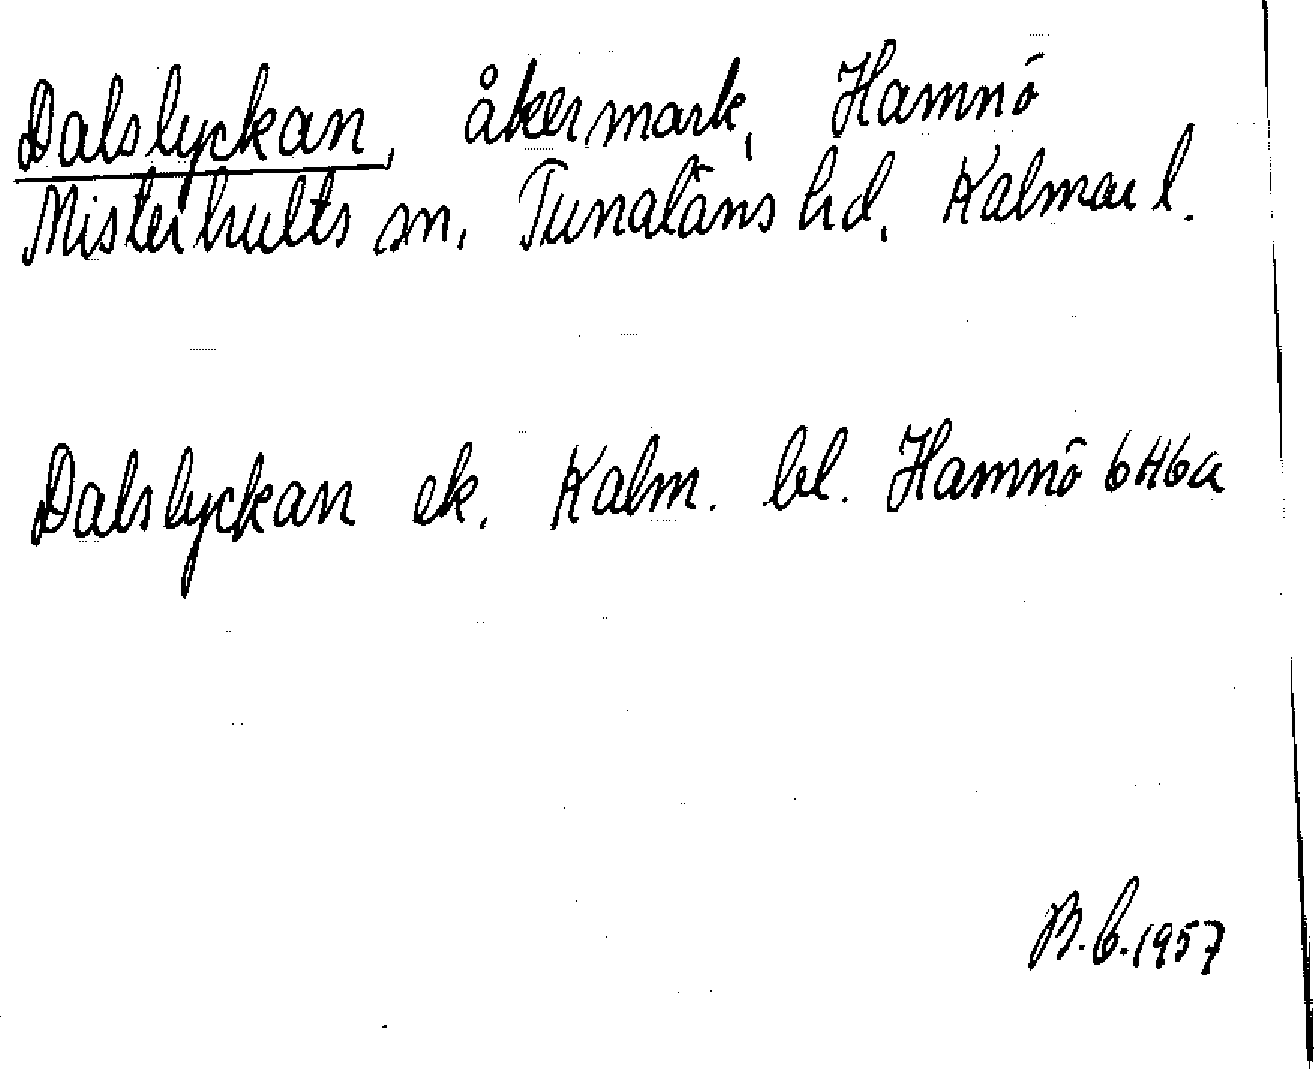 Dalslyckan, åkermark, Hamnö
Misterhults sn, Tunaläns hd, Kalmar l.
Dalslyckan ek. Kalm. bl. Hamnö 6H6a
B.G.1957